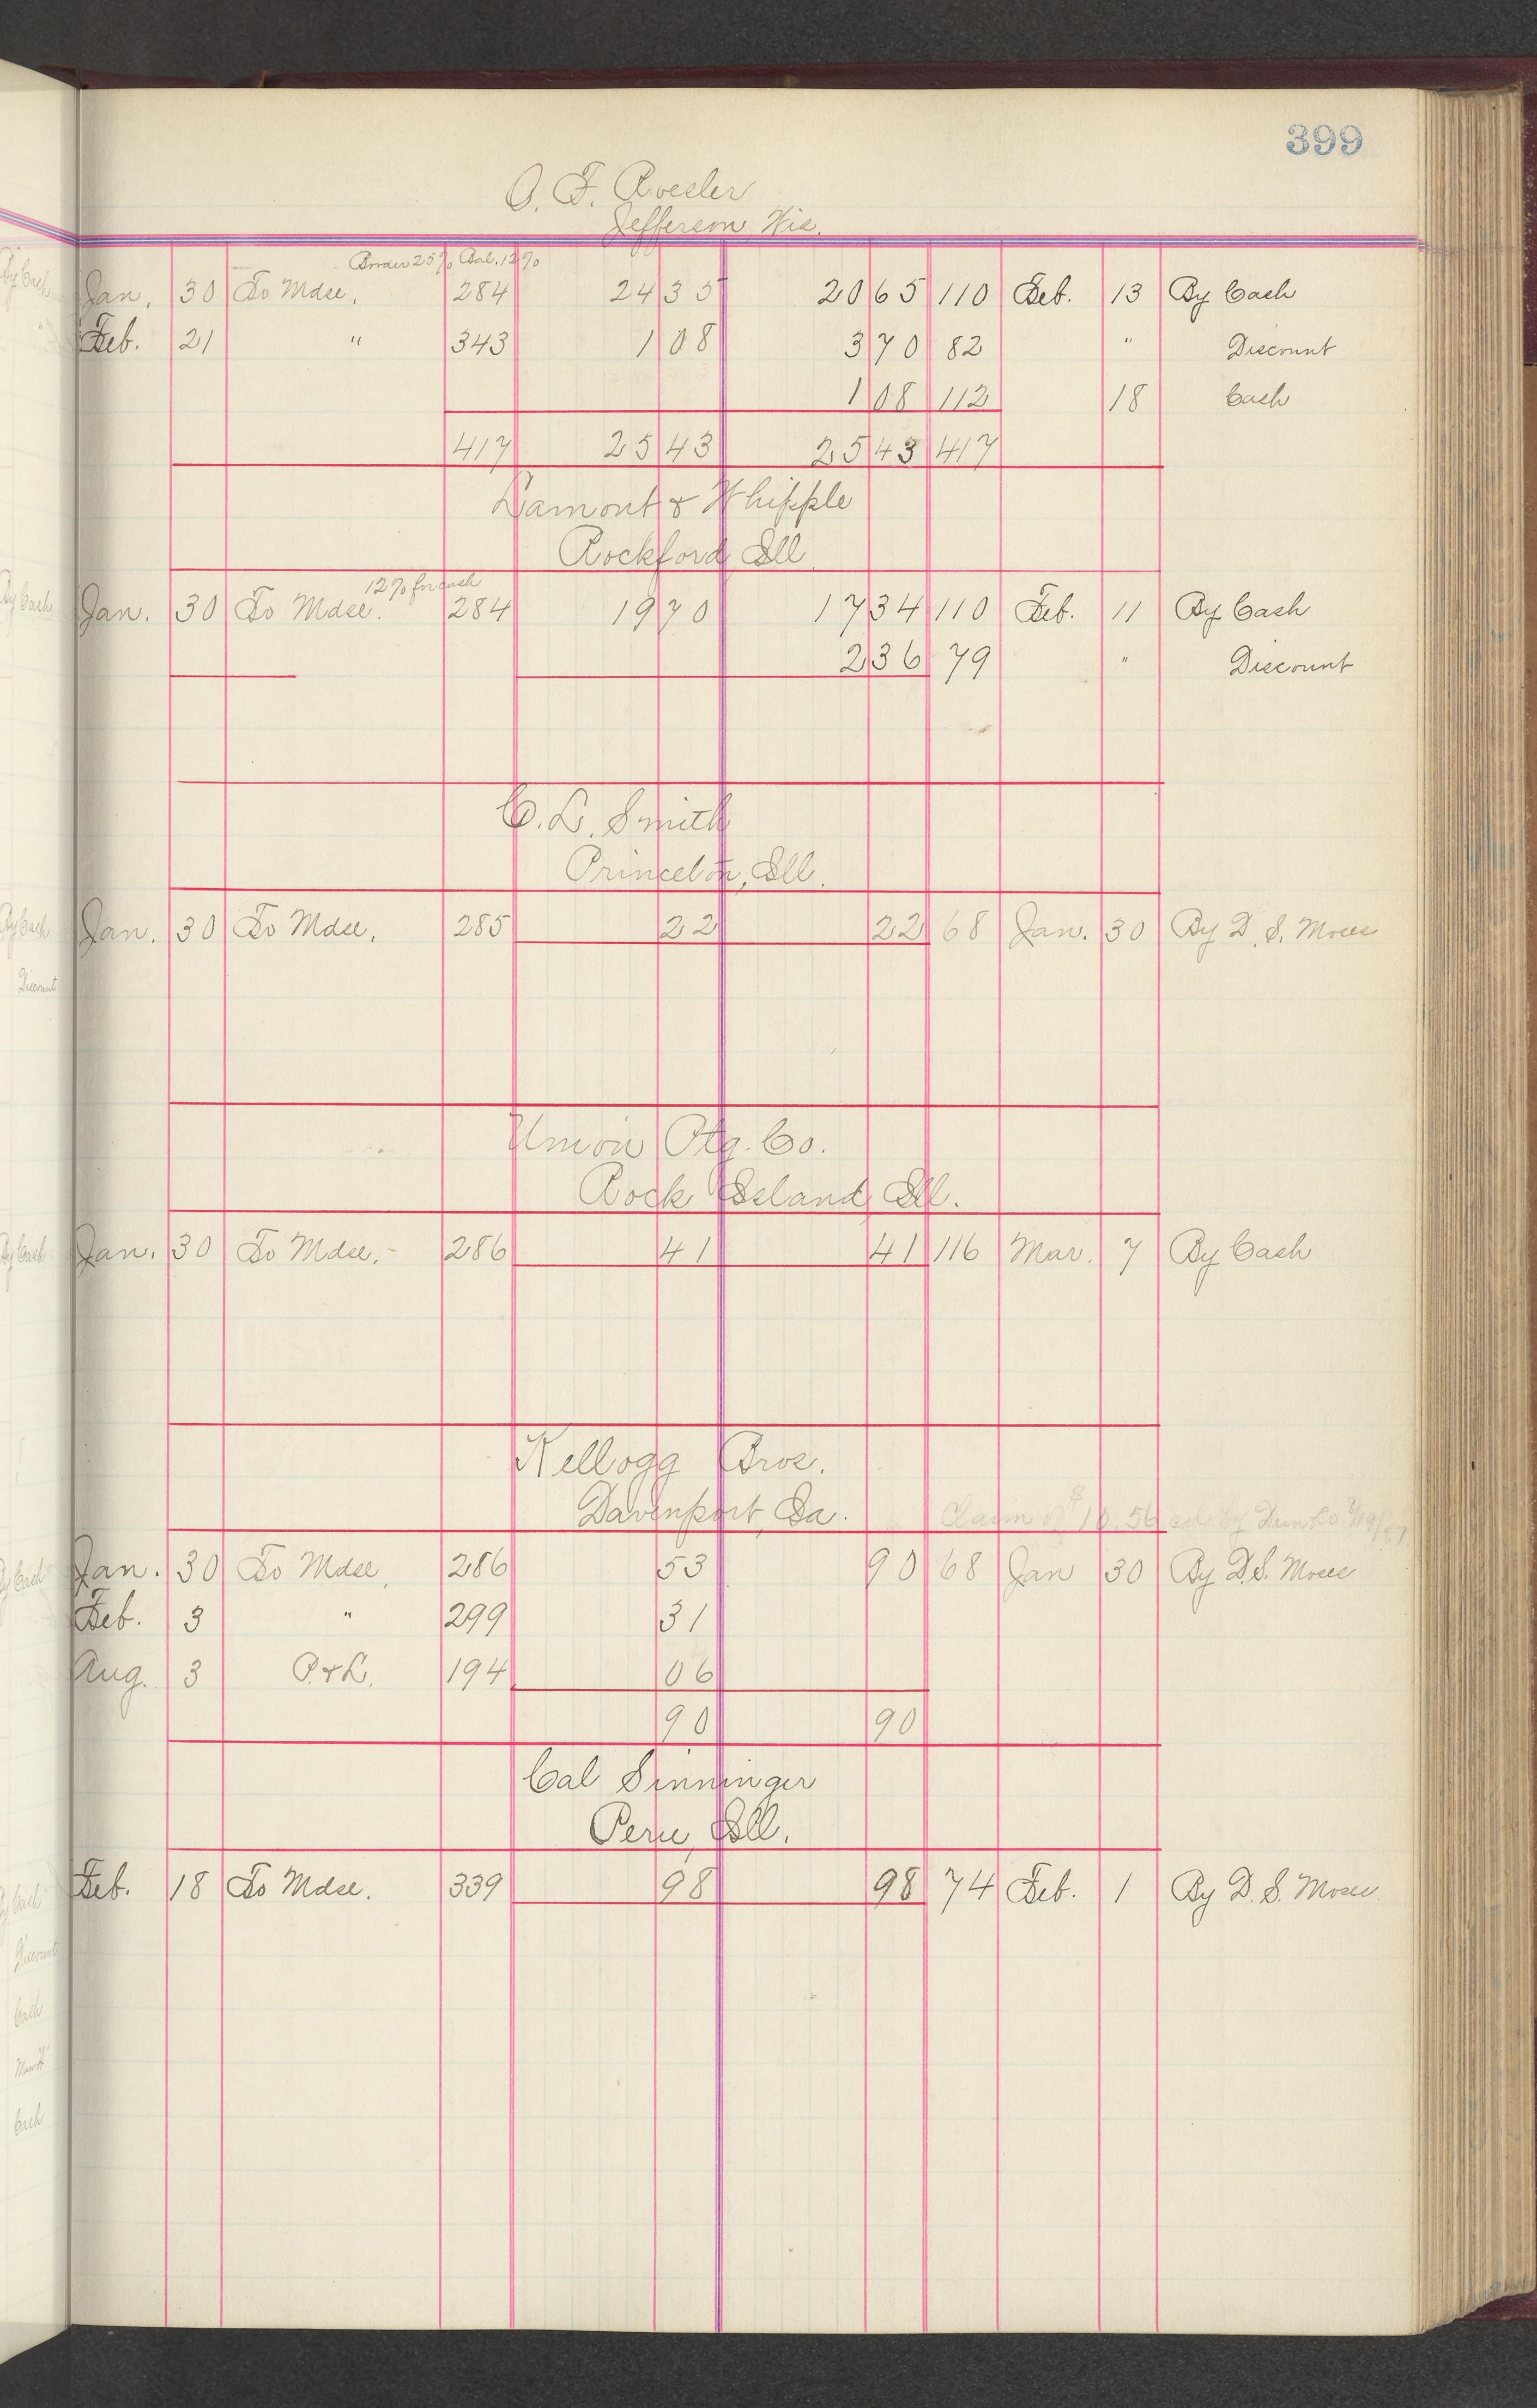 399
O. F. Roesler
Jefferson, Wis.
Border 25% Bal. 12%
Jan. 30 To Mdse. 284 24 35 20 65 110 Feb. 13 By Cash
Feb. 21 " 343 1 08 3 70 82 " Discount
1 08 112 18 Cash
417 25 43 25 43 417
Lamont & Whipple
Rockford Ill
12% for cash
Jan. 30 To Mdse. 284 19 70 17 34 110 Feb. 11 By Cash
2 36 79 " Discount
C. L. Smith
Princeton, Ill.
Jan. 30 To Mdse. 285 22 22 68 Jan. 30 By D. S. Moses
Union Ptg. Co.
Rock Island Ill.
Jan. 30 To Mdse. 286 41 41 116 Mar. 7 By Cash
Kellogg Bros.
Davenport, Ia.
Claim of $10.56 by Dun & Co
Jan. 30 To Mdse. 286 53 90 68 Jan 30 By D. S. Moses
Feb. 3 " 299 31
Aug. 3 P. & L. 194 06
90 90
Cal Sinninger
Peru, Ill.
Feb. 18 To Mdse. 339 98 98 74 Feb. 1 By D. S. Moses